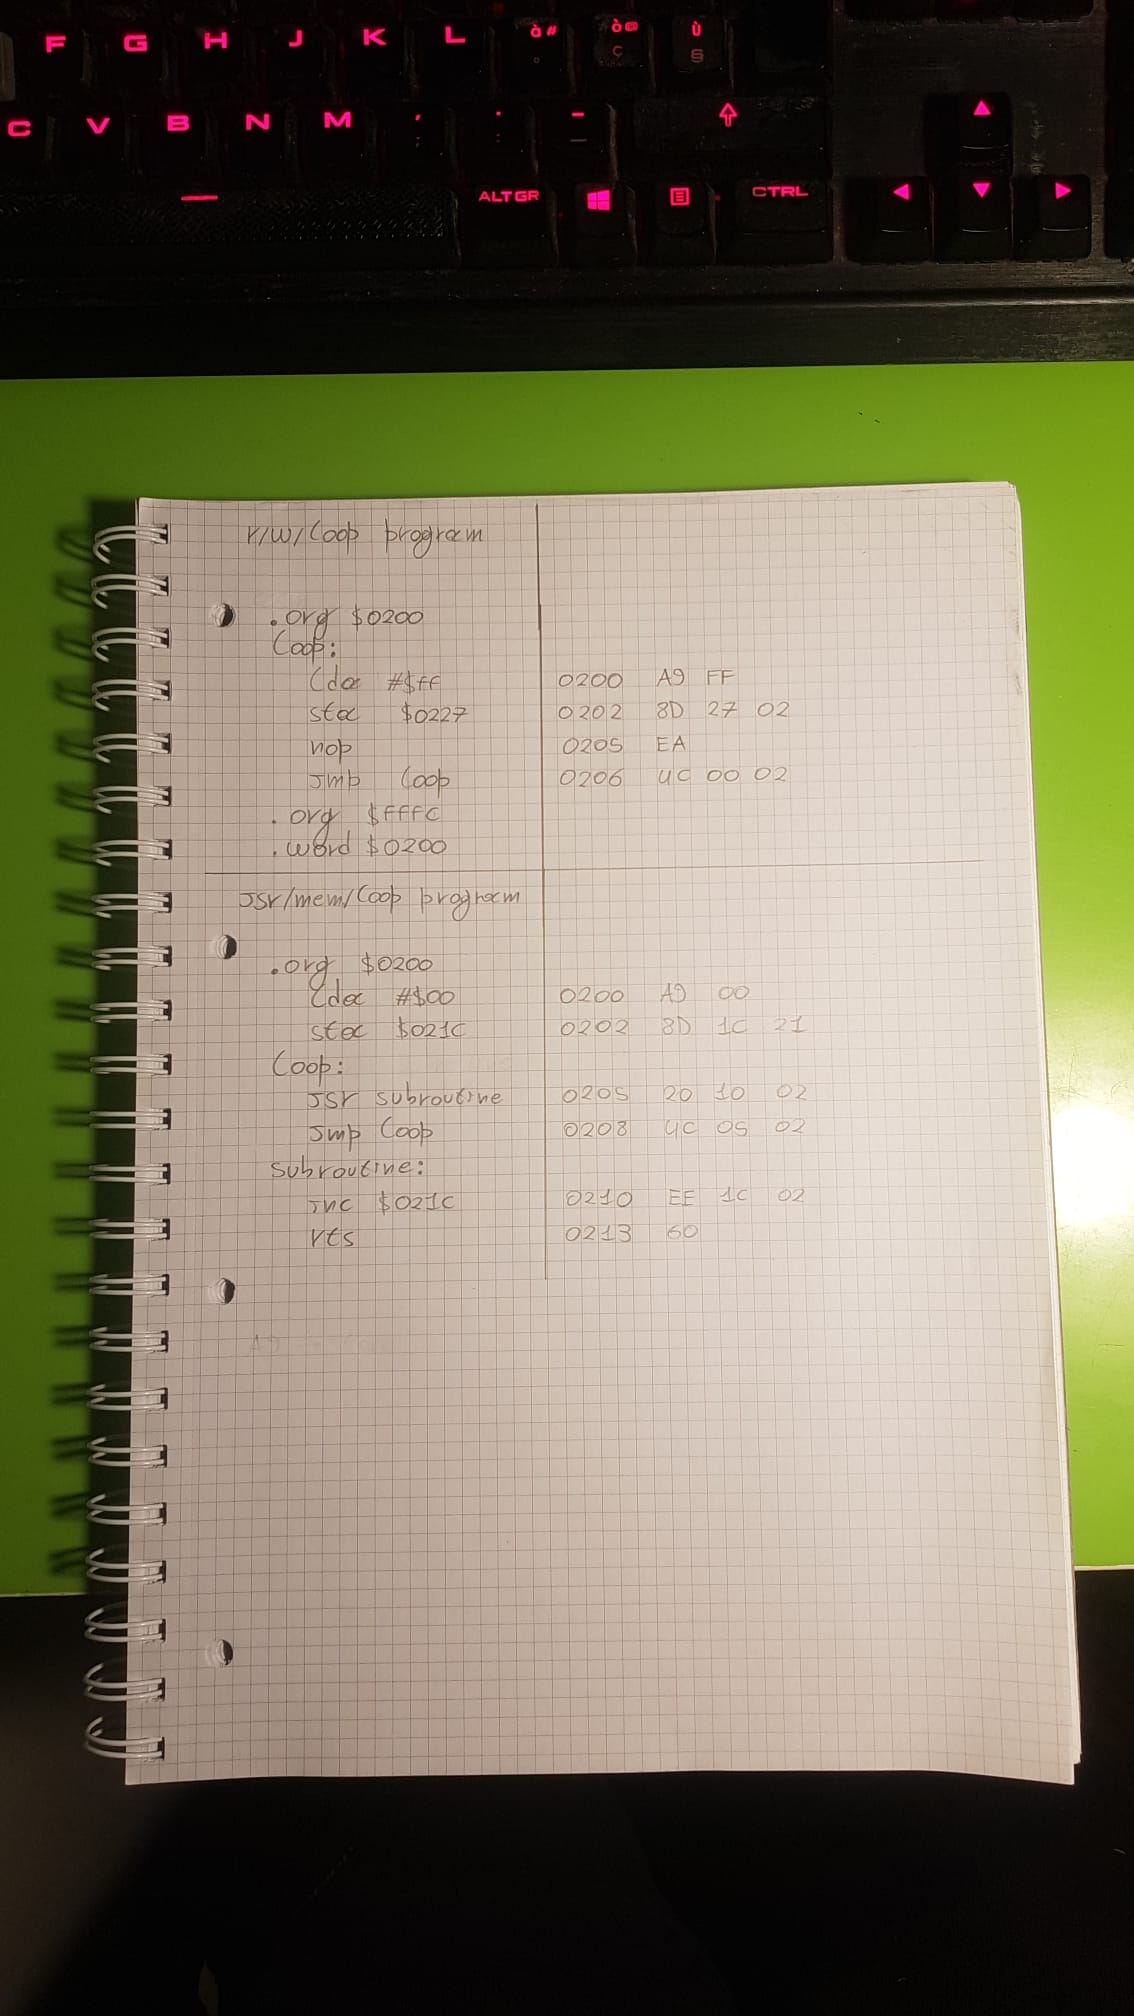 F G H J K L à # ° ò @ ç ù §
C V B N M ' . : - _
ALTGR CTRL
r/w/loop program
.org $0200
loop:
lda #$ff 0200 A9 FF
sta $0227 0202 8D 27 02
nop 0205 EA
jmp loop 0206 4C 00 02
.org $fffc
.word $0200
jsr/mem/loop program
.org $0200
lda #$00 0200 A9 00
sta $021C 0202 8D 1C 21
loop:
jsr subroutine 0205 20 10 02
jmp loop 0208 4C 05 02
subroutine:
inc $021C 0210 EE 1C 02
rts 0213 60